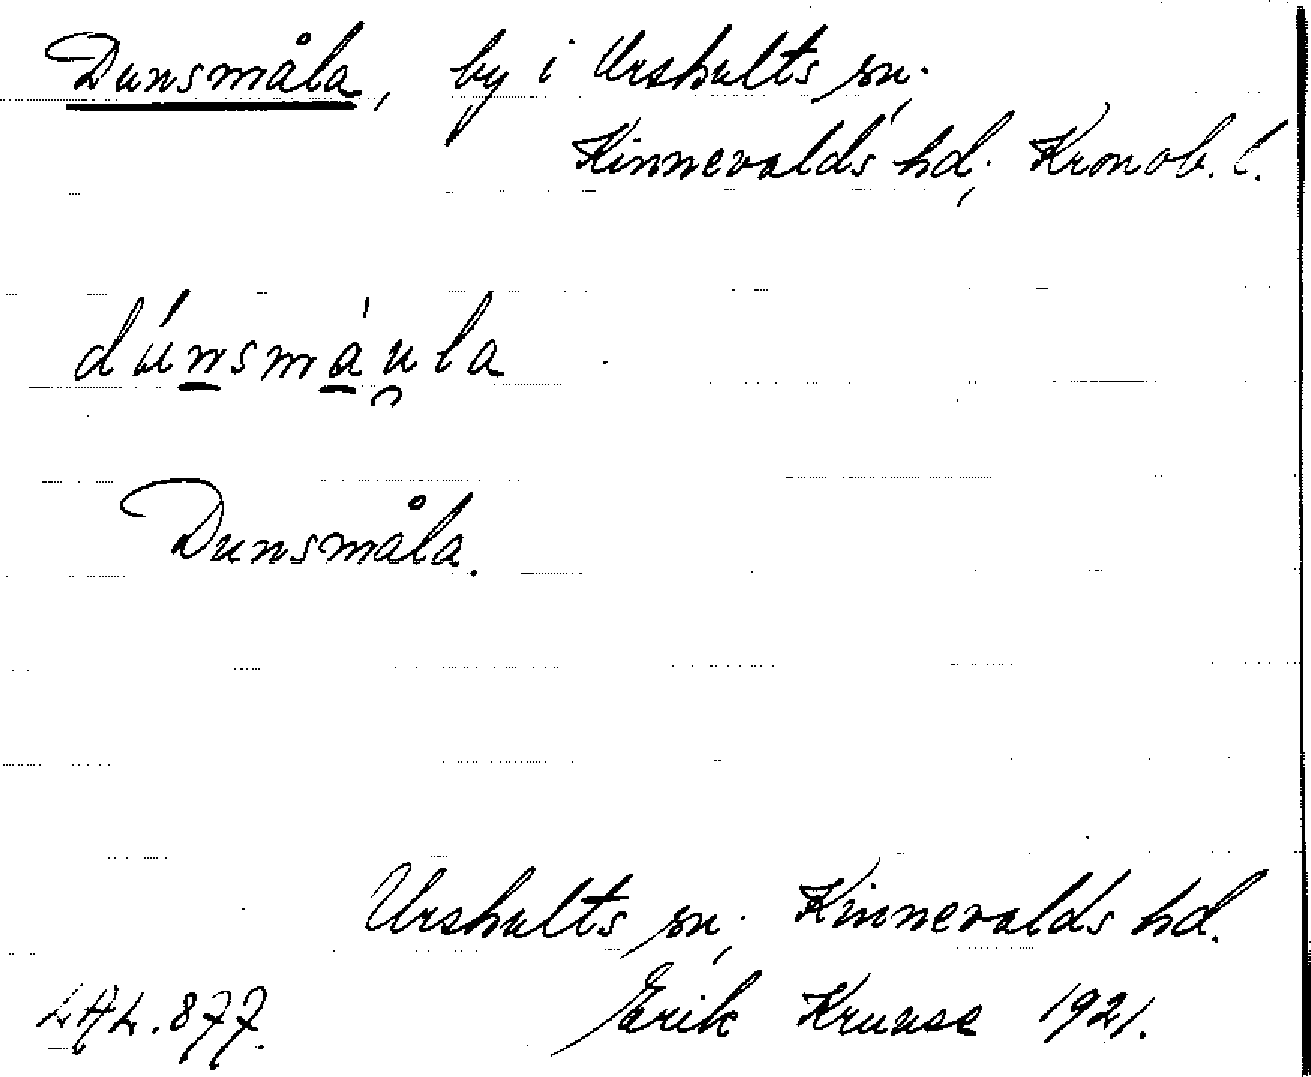 Dunsmåla, by i Urshults sn.
Kinnevalds hd, Kronob. l.
dúnsmáu̯la
Dunsmåla.
Urshults sn, Kinnevalds hd.
LAL. 877. Erik Kruuse 1921.